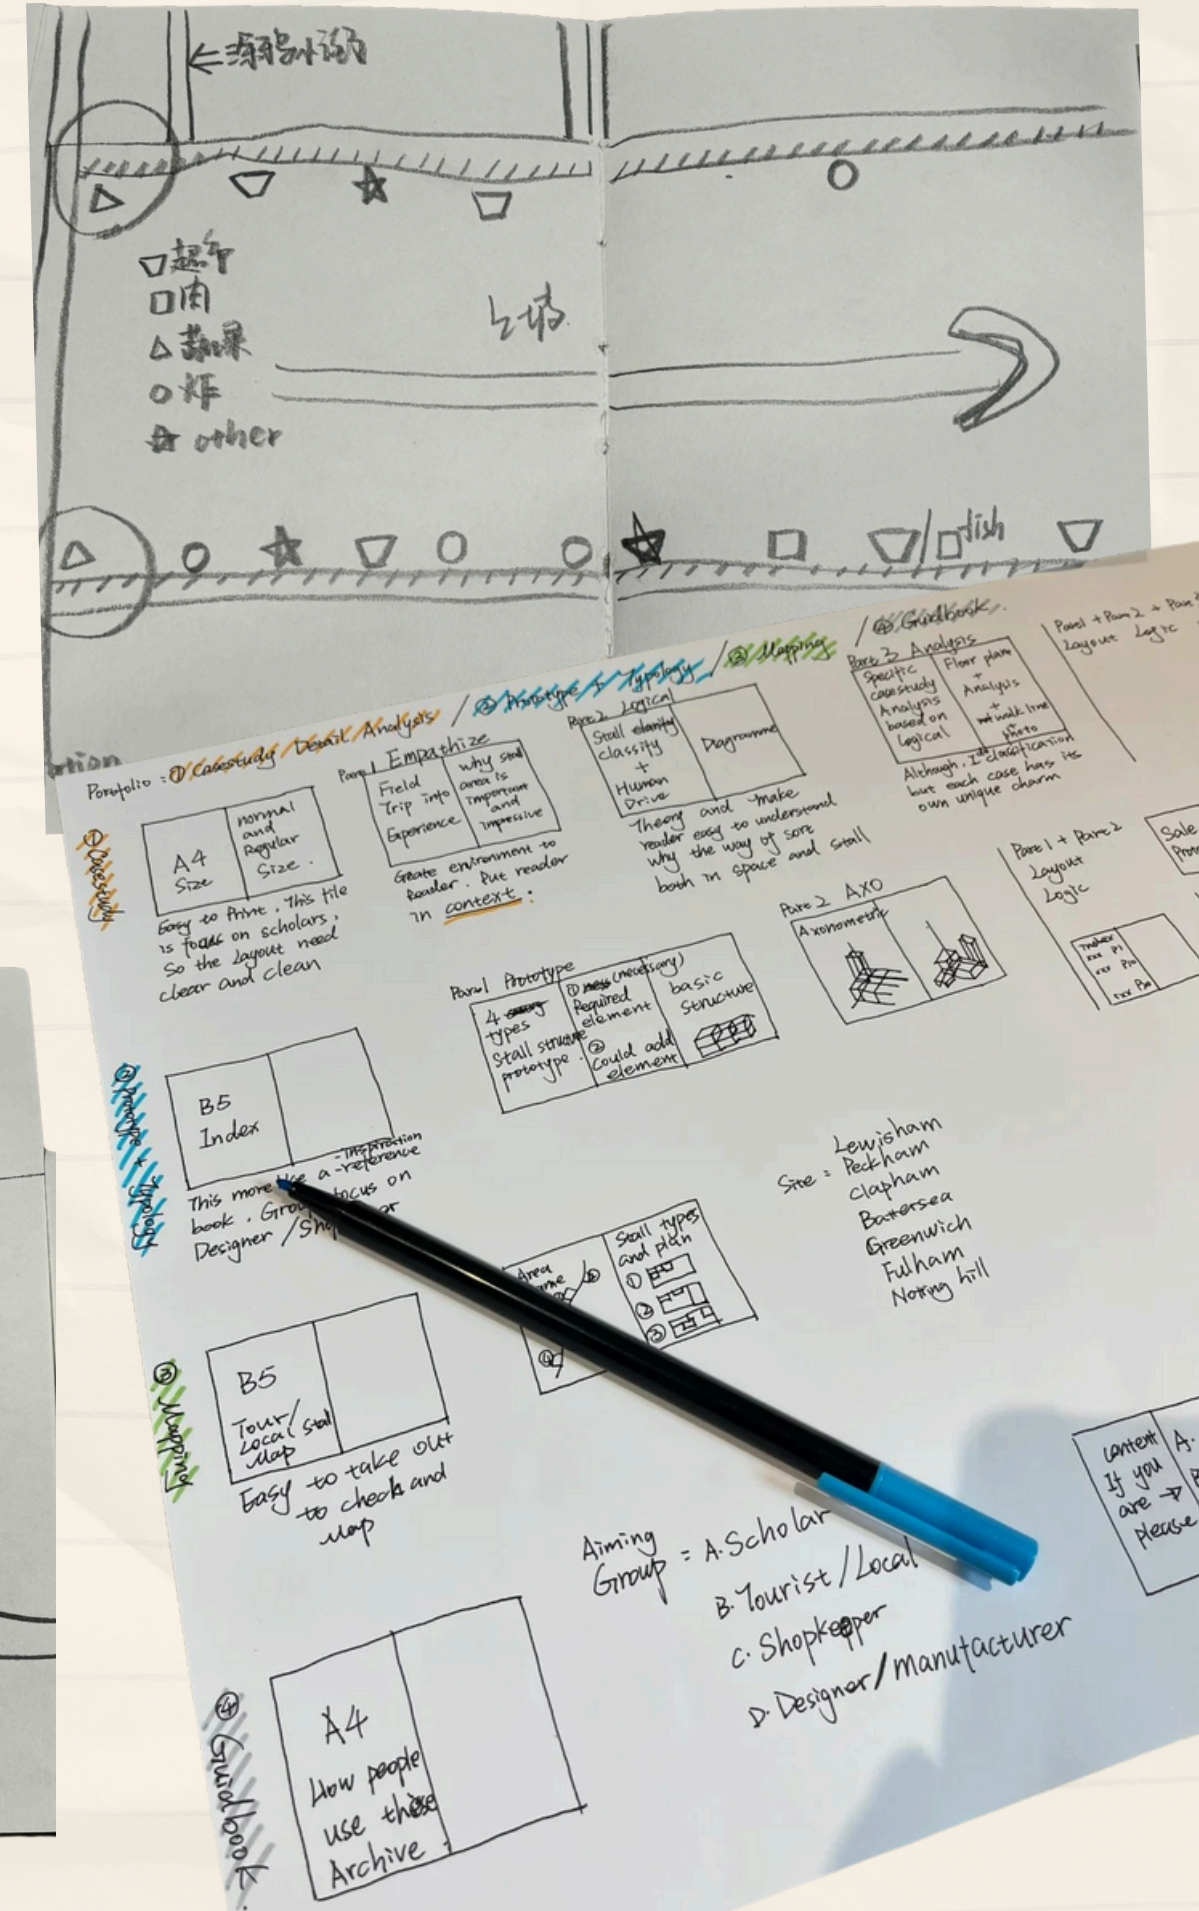 超市
肉
蔬果
炸
other
上坡
fish
Portofolio : ① Casestudy Detail Analysis / ② Prototype + Typology / ③ Mapping / ④ Guidbook.
① Casestudy
A4
Size
normal
and
Regular
Size.
Easy to Print. This file
is focus on scholars.
So the Layout need
clear and clean
Part 1 Empathize
Field
Trip into
Experience
why stall
area is
important
and
impressive
Create environment to
Reader. Put reader
in context :
Part 2 Logical
Stall clarity
classify
+
Human
Drive
Diagramme
Theory and make
reader easy to understand
why the way of sort
both in space and stall
Part 3 Analysis
Specific
casestudy
Analysis
based on
Logical
Floor plan
+
Analysis
+
walk line
+
photo
Although, I classification
but each case has its
own unique charm
Part1 + Part2 + Part3
Layout Logic
② Prototype + Typology
B5
Index
This more like a -inspiration
-reference
book. Group focus on
Designer /
Part 1 Prototype
4
types
Stall structure
prototype.
① (necessary)
Required
element
②
Could add
element
basic
structure
Part 2 AXO
Axonometric
Part 1 + Part 2
Layout
Logic
Sale
③ Mapping
B5
Tour/
Local stall
Map
Easy to take out
to check and
Map
Area
④
Stall types
and plan
①
②
③
Site = Lewisham
Peckham
Clapham
Battersea
Greenwich
Fulham
Notting hill
④ Guidbook.
A4
How people
use these
Archive.
Aiming
Group = A. Scholar
B. Tourist / Local
C. Shopkeeper
D. Designer/manufacturer
content
If you
are →
please
A.